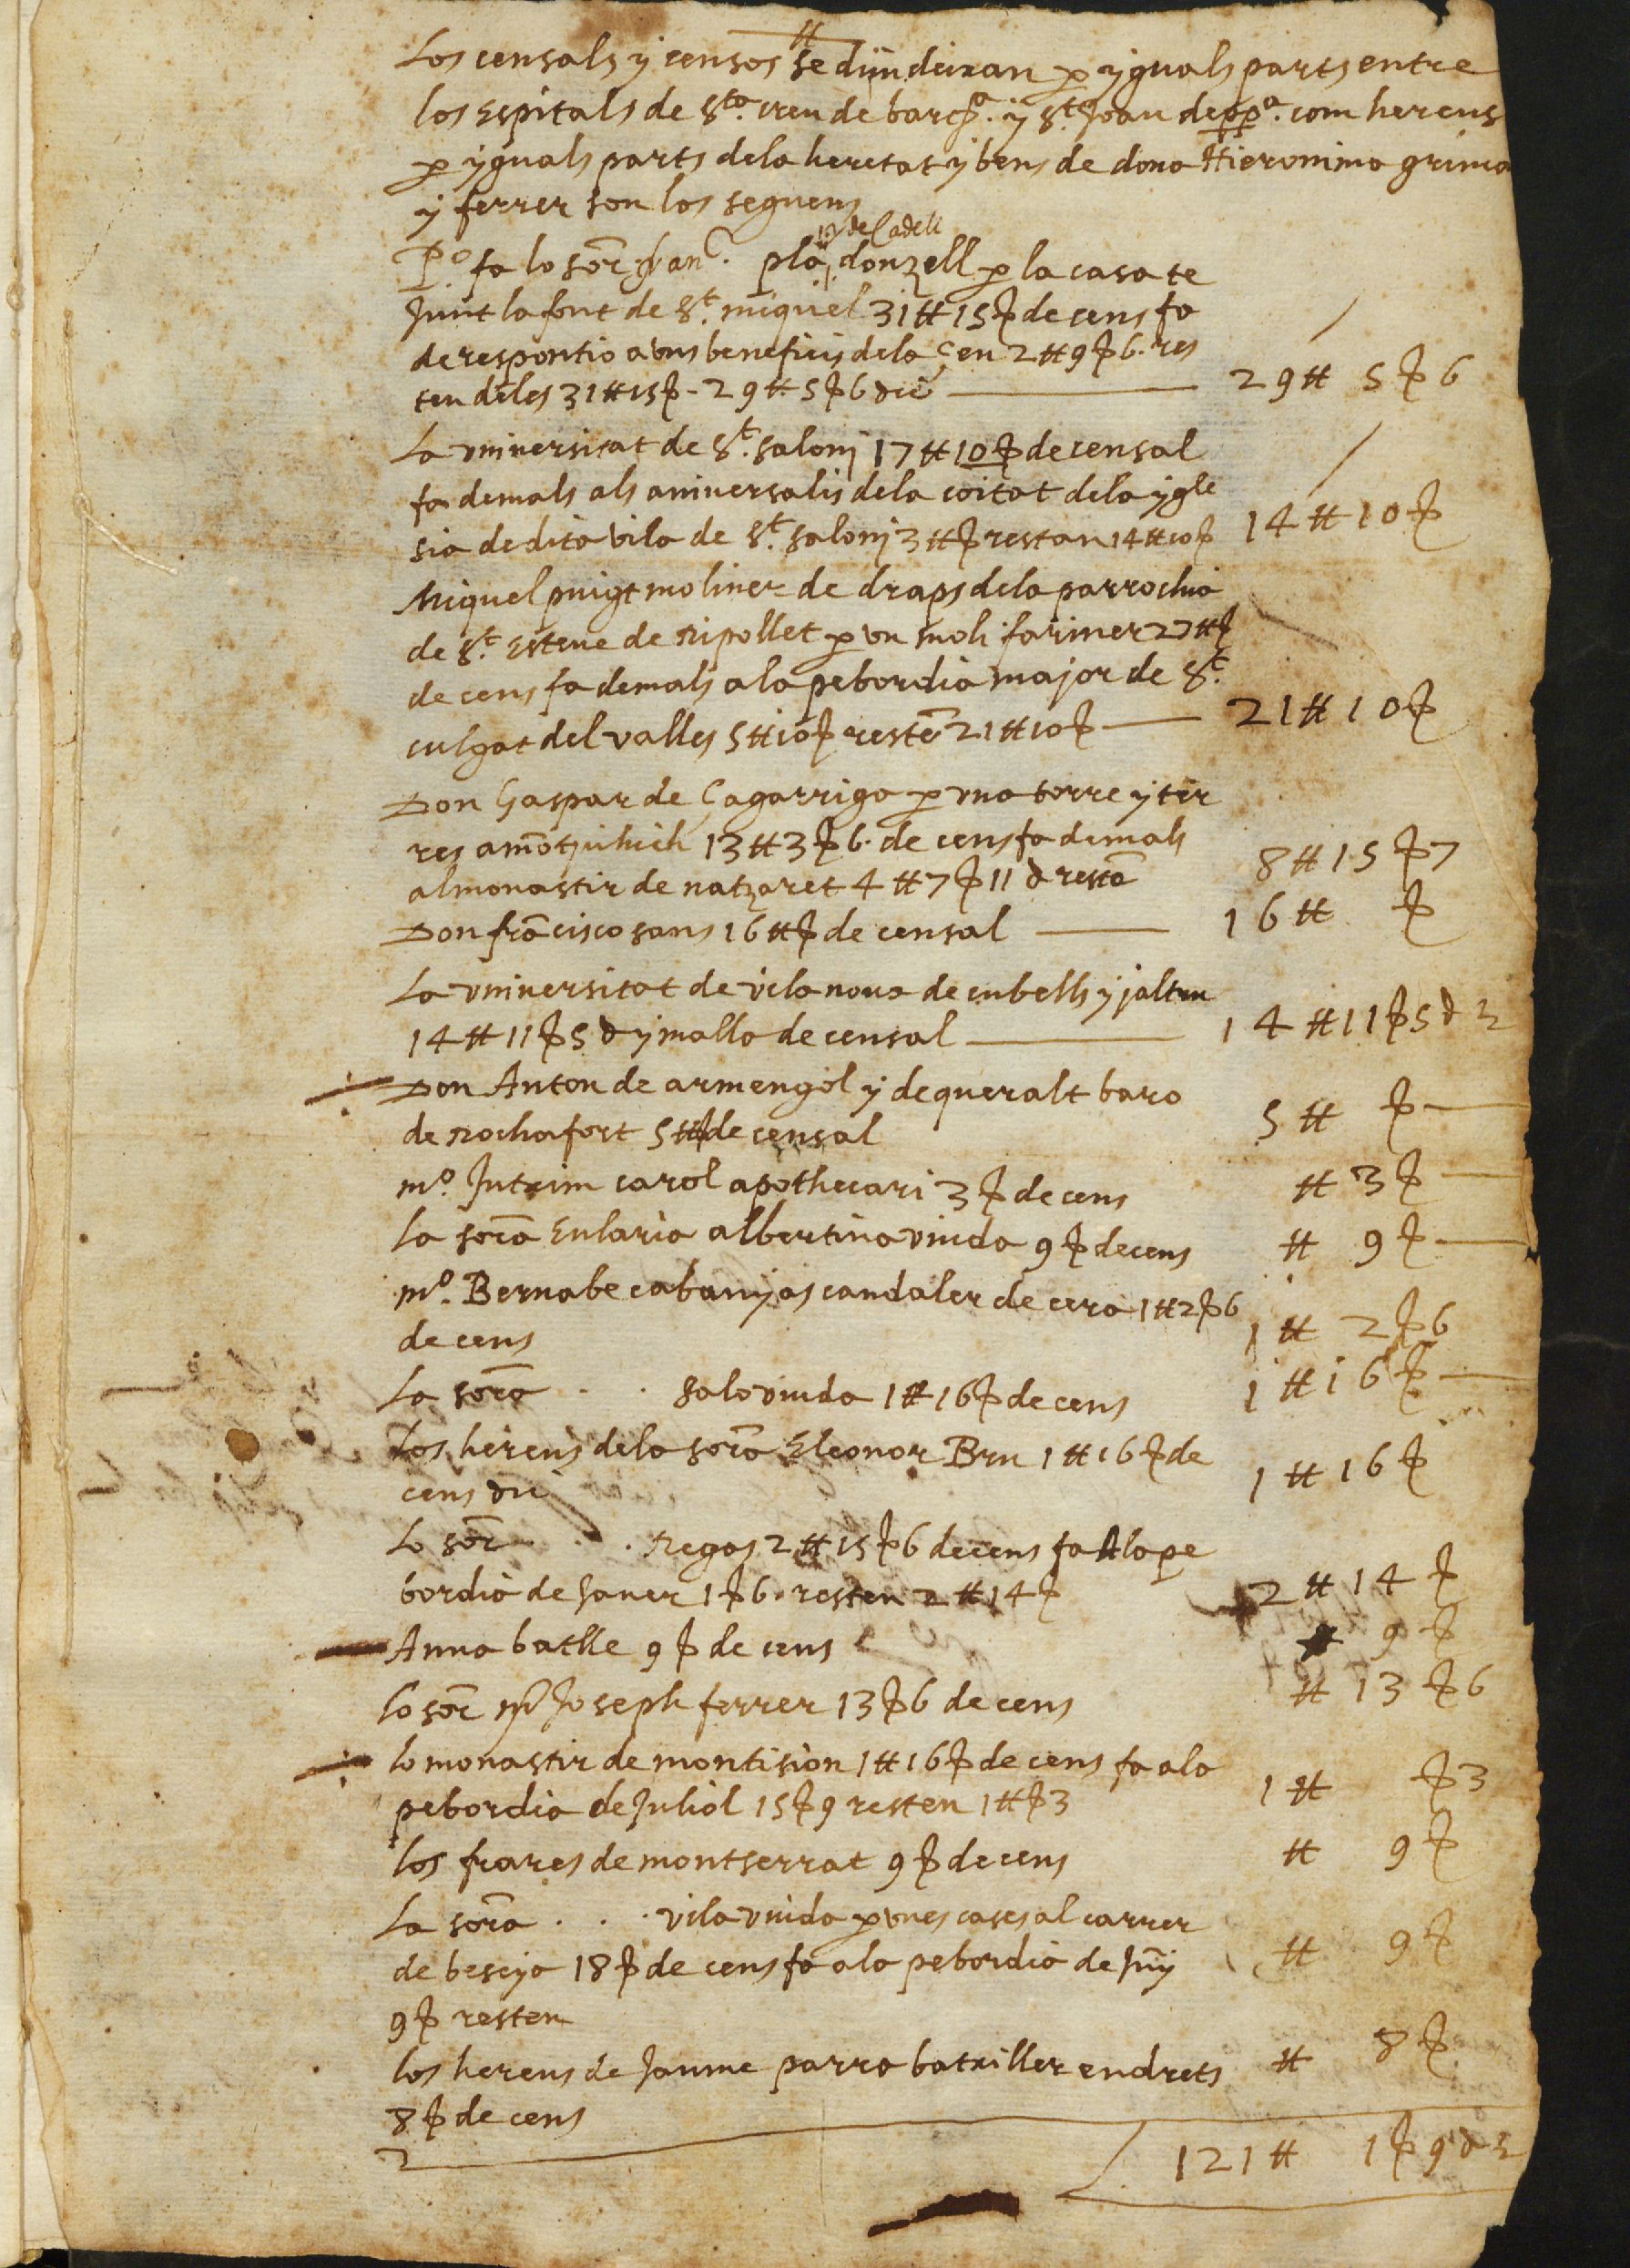 Los censals y censos se diuideixan p yguals parts entre
los Espitals de St.a creu de barcª. y St. Joan de ppª. com hereus
p yguals parts dela heretat y bens de dona Hieronima grima
y ferrer son los seguens
de Cadell
P.º fa lo sor. fran.c pla donzell p la casa te
Junt la font de St. miquel 31 ₶ 15 ẞ de cens fa
de responcio a uns beneficis dela çeu 2 ₶ 9 ẞ 6. res
ten deles 31 ₶ 15 ẞ - 29 ₶ 5 ẞ 6 dic —— 29 ₶ 5 ẞ 6
La vniuersitat de St. saloni 17 ₶ 10 ẞ de censal
fa demals als aniuersaris dela coitat dela ygle
sia de dita vila de St. saloni 3 ₶ ẞ restan 14 ₶ 10 ẞ 14 ₶ 10 ẞ
Miquel puigt moliner de draps dela parrochia
de St. Esteue de Ripollet p vn moli fariner 27 ₶ ẞ
de cens fa demals ala pebordia major de St.
culgat del valles 5 ₶ 10 ẞ resten 21 ₶ 10 ẞ —— 21 ₶ 10 ẞ
Don Gaspar de Çagarriga p vna torre y ter
res a mōtjuhich 13 ₶ 3 ẞ 6. de cens fa demals
al monastir de natzaret 4 ₶ 7 ẞ 11 d resta 8 ₶ 15 ẞ 7
Don frācisco sans 16 ₶ ẞ de censal —— 16 ₶ ẞ
La vniuersitat de vila noua de cubells y jaltru
14 ₶ 11 ẞ 5 d y malla de censal —— 14 ₶ 11 ẞ 5 d
Don Anton de armengol y de queralt baro
de Rochafort 5 ₶ ẞ de censal 5 ₶ ẞ —
m.º Intxim carol apothecari 3 ẞ de cens ₶ 3 ẞ —
La sora Eularia albertina viuda 9 ẞ de cens ₶ 9 ẞ —
m.º Bernabe cabanyas candaler de cera 1 ₶ 2 ẞ 6
de cens 1 ₶ 2 ẞ 6
La sora . . sala viuda 1 ₶ 16 ẞ de cens 1 ₶ 16 ẞ —
Los hereus dela sora Eleonor Bru 1 ₶ 16 ẞ de
cens dic 1 ₶ 16 ẞ
Lo sor . . Regas 2 ₶ 15 ẞ 6 de cens fa A la pe
bordia de Janer 1 ẞ 6. resten 2 ₶ 14 ẞ 2 ₶ 14 ẞ
Anna batlle 9 ẞ de cens 9 ẞ
Lo sor Joseph ferrer 13 ẞ 6 de cens ₶ 13 ẞ 6
lo monastir de montision 1 ₶ 16 ẞ de cens fa ala
pebordia de Juliol 15 ẞ 9 resten 1 ₶ ẞ 3 1 ₶ ẞ 3
los frares de montserrat 9 ẞ de cens ₶ 9 ẞ
La sora . . . vila viuda p vnes cases al carrer
de beseya 18 ẞ de cens fa ala pebordia de Juñy ₶ 9 ẞ
9 ẞ resten
los hereus de Jaume parra batxiller en drets ₶ 8 ẞ
8 ẞ de cens
121 ₶ 1 ẞ 9 d